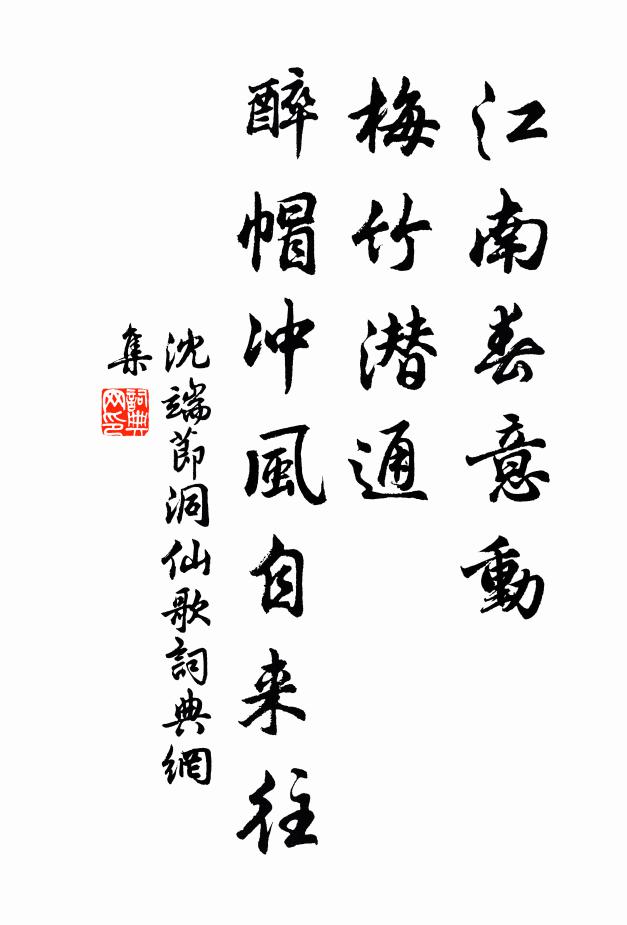 江南春意動
梅竹潜通
醉帽冲風自来往
沈端節洞仙歌詞典網
集
詞典
网印